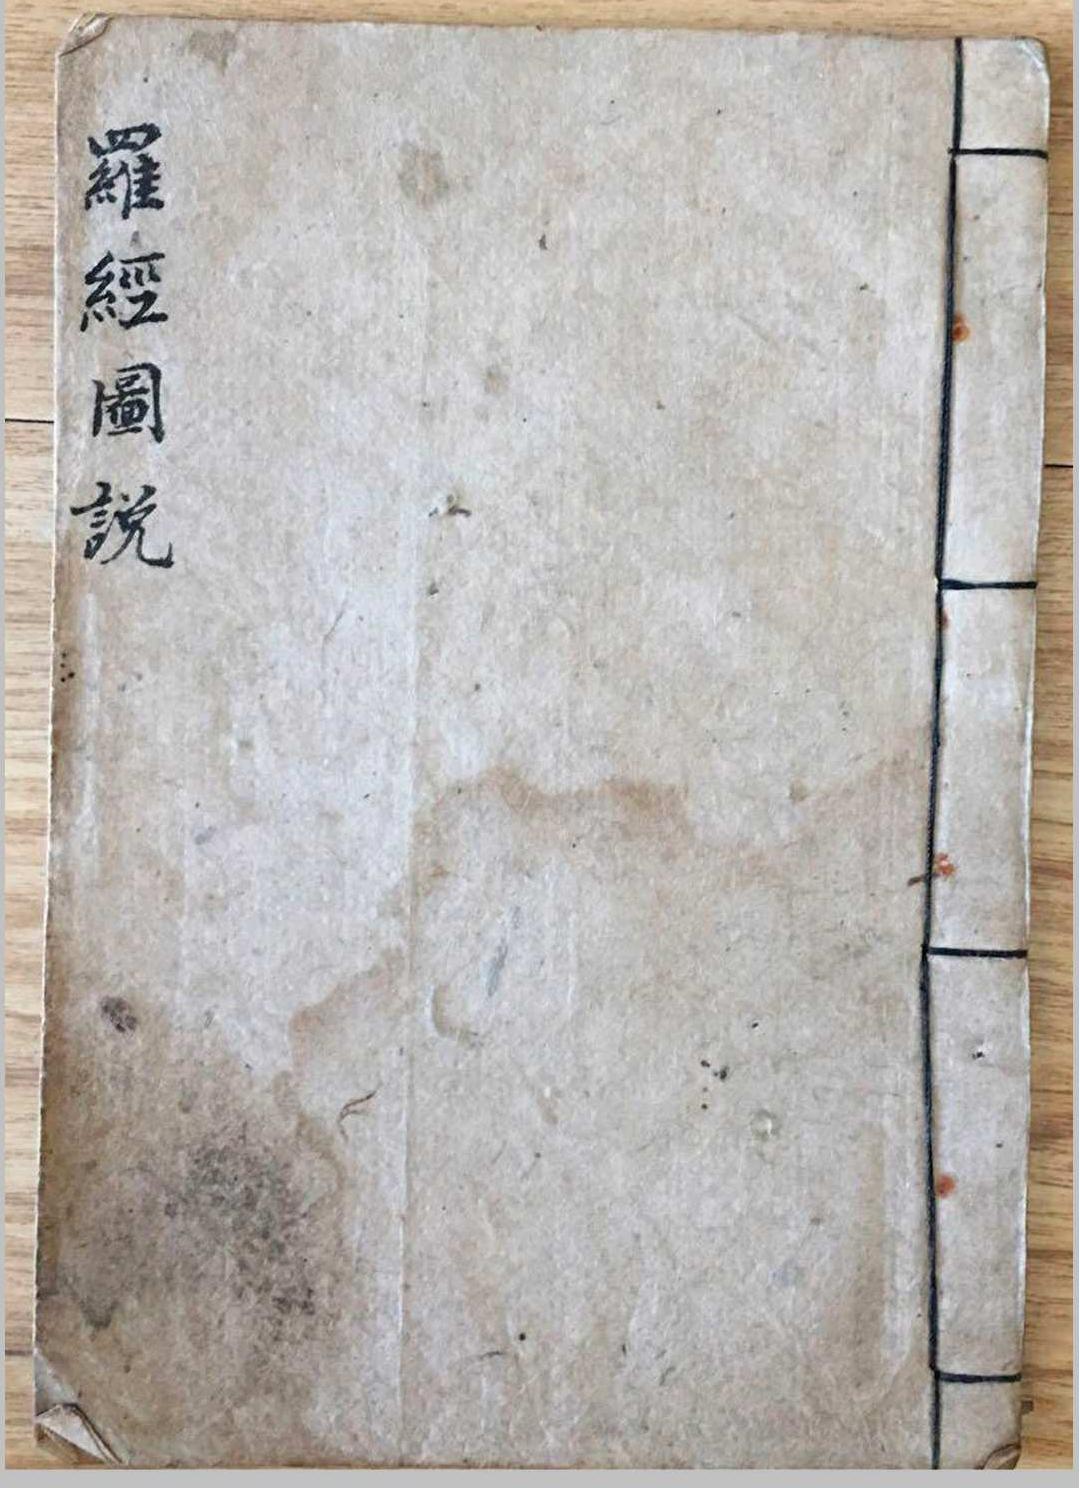 羅經圖說